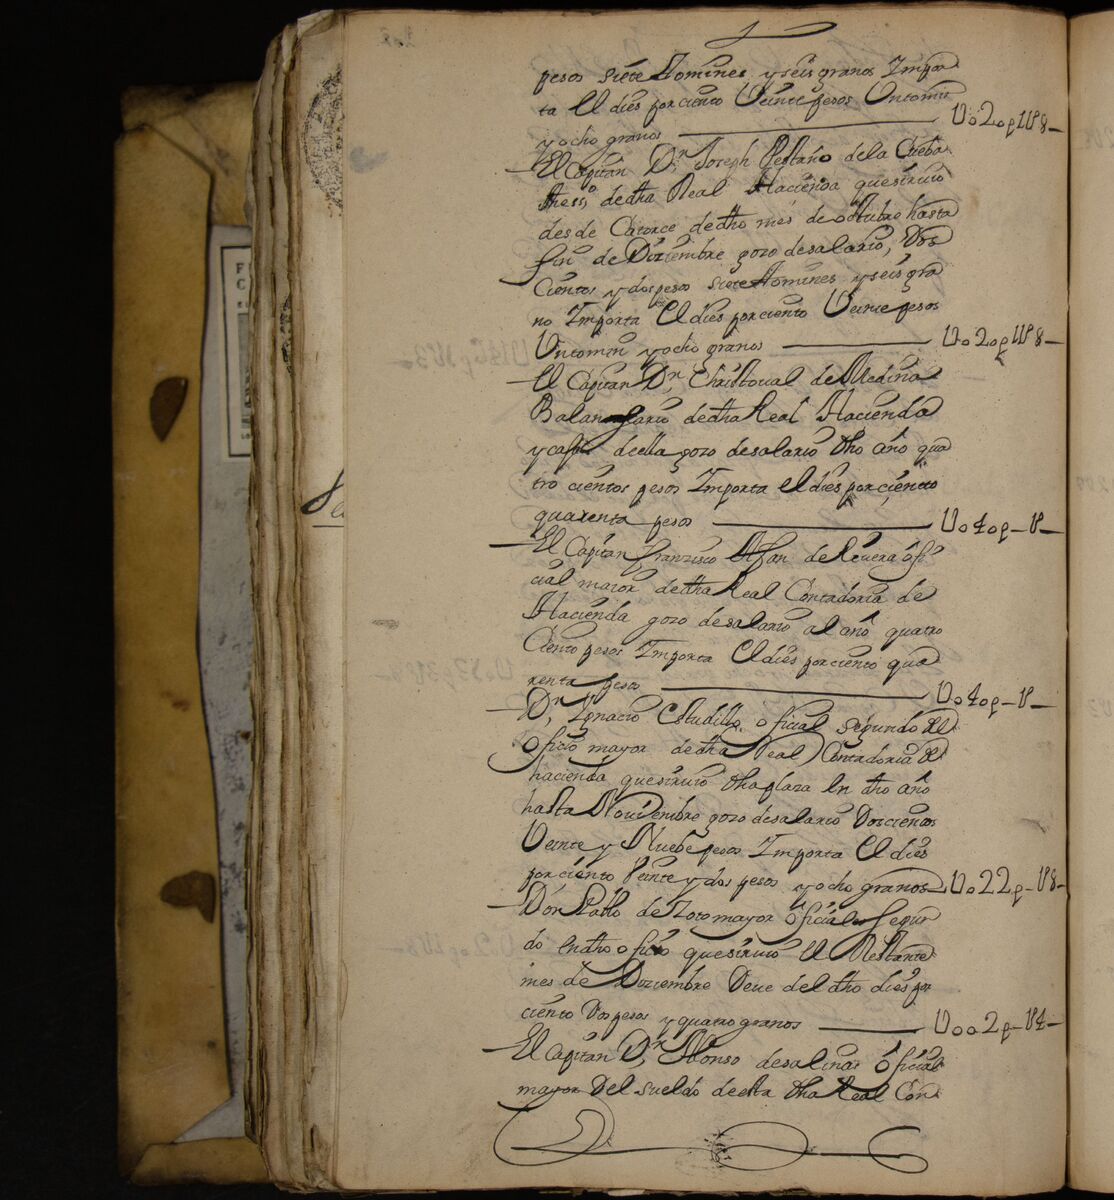 pesos siete tomines y seis granos Impor
ta El dies por ciento Veinte pesos Untomin
y ocho granos U020p1U8
El Capitan Dn, Joseph de la Cueba
thesso, de dha Real Hacienda que siruio
desde Catorce de dho mes de octubre hasta
fin de Diziembre gozo de salario, Dos
cientos y dos pesos siete tomines y seis gra
no Importa El dies por ciento Veinte pesos
Untomin y ocho granos U020p1U8
El Capitan Dn, Christoual de Medina
Balan sario de dha Real Hacienda
y de ella gozo de salario dho año qua
tro cientos pesos Importa el dies por ciento
quarenta pesos U040p-U-
El Capitan Franzisco Afan de Riuera ofi
cial maior de dha Real Contadoria de
Hacienda gozo de salario al año quatro
Ciento pesos Importa El dies por ciento qua
renta pesos U040p-U-
Dn, Ignacio Estudillo oficial segundo del
oficio mayor de dha Real Contadoria de
hacienda que siruio dha plaza en dho año
hasta Nouiembre gozo de salario Doscientos
Veinte y Nuebe pesos Importa El dies
por ciento Veinte y dos pesos y ocho granos U022p-U8-
Don Pablo de Sotomayor oficial segun
do en dho oficio que siruio El Restante
mes de Diziembre Deue del dho dies por
ciento Dos pesos y quatro granos U002p-U4-
El Capitan Dn, Alonso de salinas oficial
mayor Del sueldo de esta dha Real Con